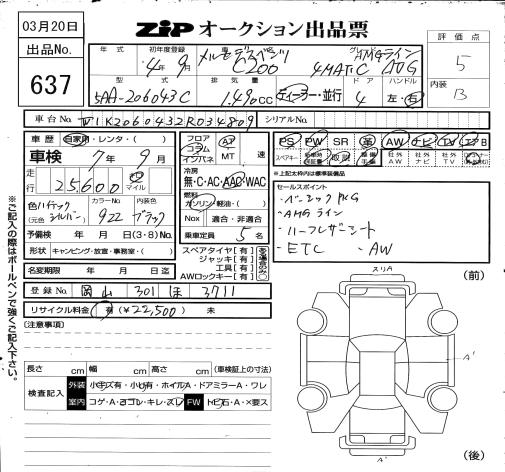 03月20日
ZIP オークション出品票
出品No.
637
年式 初年度登録 車名 グレード
4年 9月 メルセデスベンツ C200 4MATIC AMGライン AVG
型式 排気量 ディーラー・並行 ドア ハンドル
5AA-206043C 1,490cc 4 左・右
評価点
5
内装
B
車台No. W1K2060432R034809 シリアルNo.
車歴 自家用・レンタ・( )
フロア コラム インパネ AT MT 速
PS PW SR 革 AW ナビ TV エアB
車検 7年 9月
スペアキー 取説 社外AW 社外ナビ 社外TV
※上記太枠内は標準装備品
走行 25600 km マイル
冷房 無・C・AC・AAC・WAC
セールスポイント
・ベーシックPKG
・AMGライン
・ハーフレザーシート
・ETC ・AW
色 ハイテックシルバー (元色) カラーNo. 922 内装色 ブラック
燃料 ガソリン・軽油・( )
Nox 適合・非適合
予備検 年 月 日(3・8)No.
乗車定員 5名
形状 キャンピング・放宣・事務室・( )
スペアタイヤ[有]
ジャッキ[有]
工具[有]
AWロックキー[有]
名変期限 年 月 日迄
登録No. 岡山 301 ほ 3711
リサイクル料金 有(¥22,500) 未
[注意事項]
スリA
(前)
A'
A'
(後)
長さ cm 幅 cm 高さ cm (車検証上の寸法)
検査記入 外装 小キズ有・小凹有・ホイルA・ドアミラーA・ワレ
室内 コゲ・A・ヨゴレ・キレ・スレ FW トビ石・A・×要ス
※ご記入の際はボールペンで強くご記入下さい。